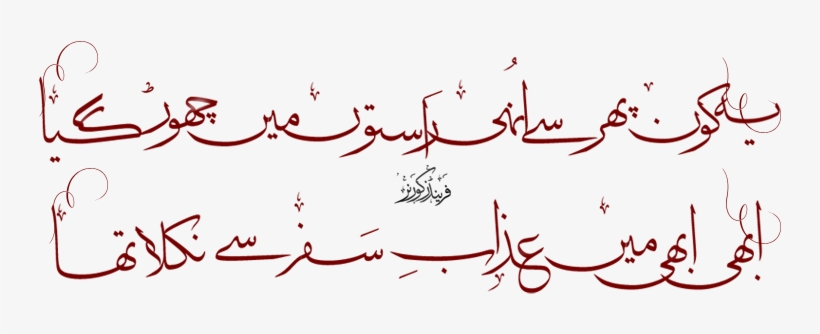 یہ کون پھر سے اُنہی راستوں میں چھوڑ گیا
فرینڈز کورنر
ابھی ابھی میں عذابِ سَفر سے نکلا تھا